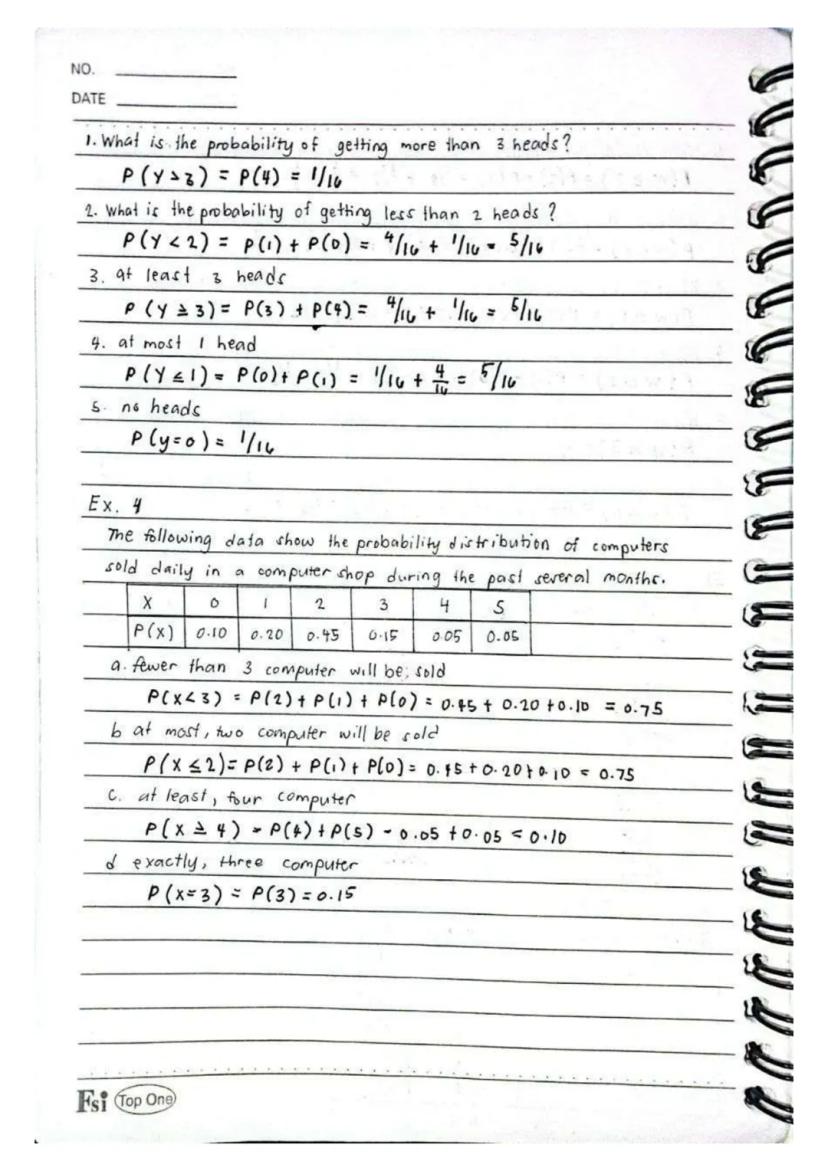 NO.
DATE
1. What is the probability of getting more than 3 heads?
P(Y>3) = P(4) = 1/16
2. What is the probability of getting less than 2 heads?
P(Y<2) = P(1) + P(0) = 4/16 + 1/16 = 5/16
3. at least 3 heads
P(Y≥3) = P(3) + P(4) = 4/16 + 1/16 = 5/16
4. at most 1 head
P(Y≤1) = P(0) + P(1) = 1/16 + 4/16 = 5/16
5. no heads
P(y=0) = 1/16
Ex. 4
The following data show the probability distribution of computers
sold daily in a computer shop during the past several months.
X 0 1 2 3 4 5
P(X) 0.10 0.20 0.45 0.15 0.05 0.05
a. fewer than 3 computer will be sold
P(X<3) = P(2) + P(1) + P(0) = 0.45 + 0.20 + 0.10 = 0.75
b at most, two computer will be sold
P(X≤2) = P(2) + P(1) + P(0) = 0.45 + 0.20 + 0.10 = 0.75
c. at least, four computer
P(X≥4) = P(4) + P(5) = 0.05 + 0.05 = 0.10
d exactly, three computer
P(X=3) = P(3) = 0.15
Fsi Top One